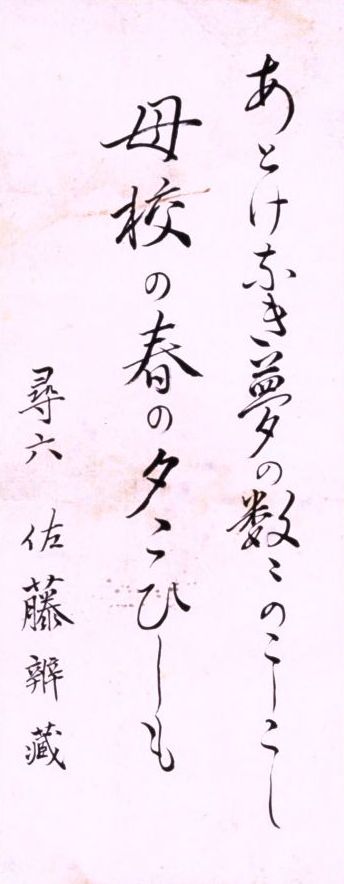 あとけなき夢の数〻のこしこし
母校の春の夕こひしも
尋六 佐藤辨藏